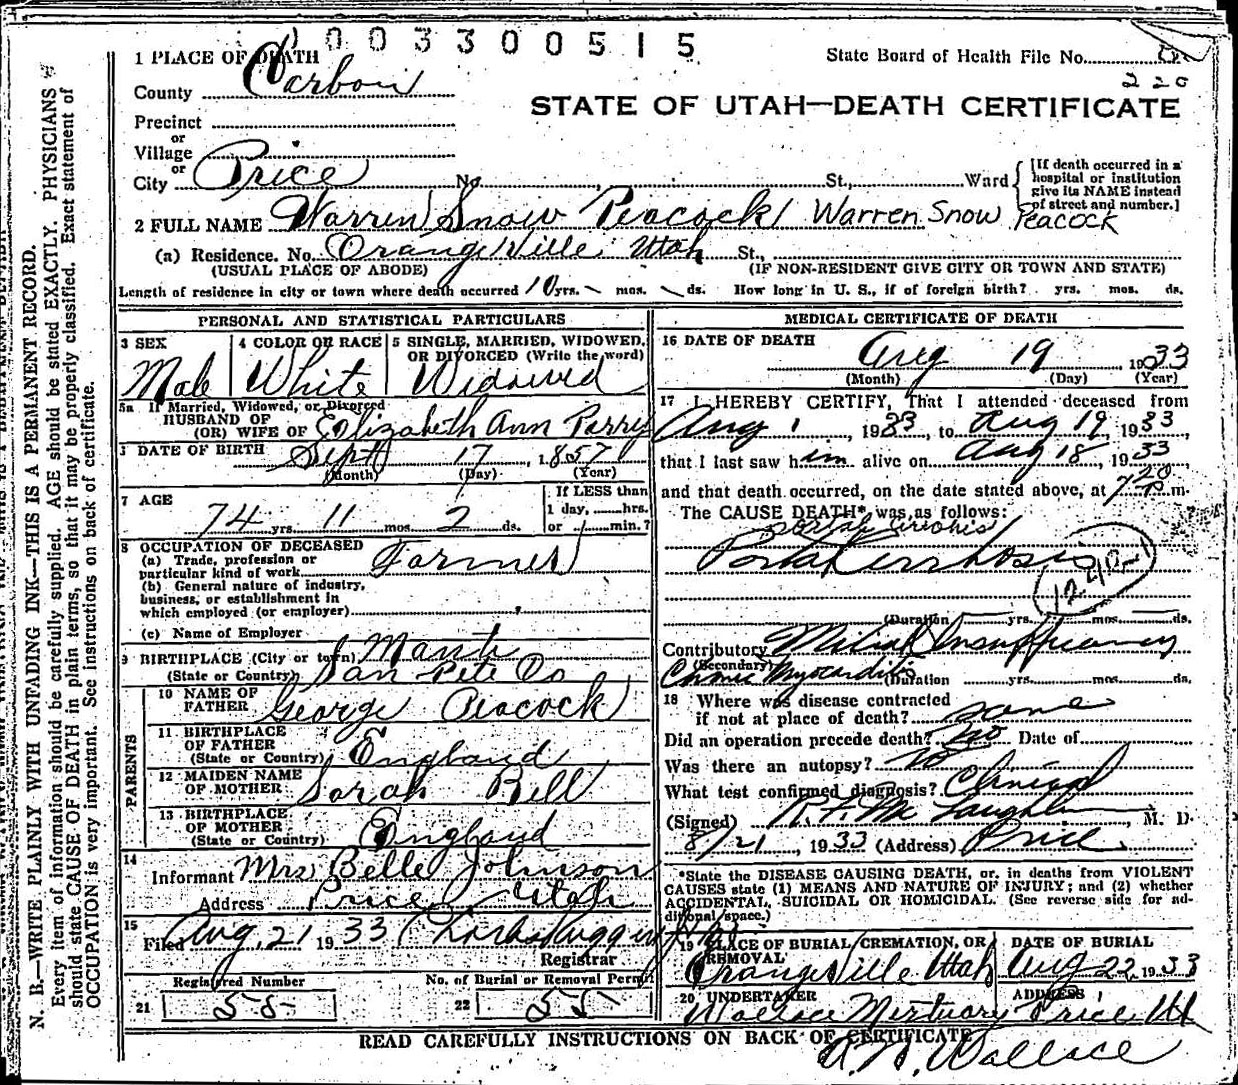 0033300515
1 PLACE OF DEATH
State Board of Health File No.
220
County Carbon
STATE OF UTAH—DEATH CERTIFICATE
Precinct
or
Village
or
City Price No. St., Ward
[If death occurred in a hospital or institution give its NAME instead of street and number.]
2 FULL NAME Warren Snow Peacock Warren Snow Peacock
(a) Residence. No. Orangeville Utah St.,
(USUAL PLACE OF ABODE) (IF NON-RESIDENT GIVE CITY OR TOWN AND STATE)
Length of residence in city or town where death occurred 10 yrs. - mos. - ds. How long in U. S., if of foreign birth? yrs. mos. ds.
PERSONAL AND STATISTICAL PARTICULARS
3 SEX 4 COLOR OR RACE 5 SINGLE, MARRIED, WIDOWED, OR DIVORCED (Write the word)
Male White Widowed
5a If Married, Widowed, or Divorced
HUSBAND OF
(OR) WIFE OF Elizabeth Ann Parry
DATE OF BIRTH Sept 17, 1857
(Month) (Day) (Year)
7 AGE If LESS than
74 yrs. 11 mos. 2 ds. 1 day, hrs.
or min.?
8 OCCUPATION OF DECEASED
(a) Trade, profession or
particular kind of work Farmer
(b) General nature of industry,
business, or establishment in
which employed (or employer)
(c) Name of Employer
9 BIRTHPLACE (City or town) Manti
(State or Country) San Pete Co
PARENTS
10 NAME OF
FATHER George Peacock
11 BIRTHPLACE
OF FATHER
(State or Country) England
12 MAIDEN NAME
OF MOTHER Sarah Bell
13 BIRTHPLACE
OF MOTHER
(State or Country) England
14
Informant Mrs Belle Johnson
Address Price Utah
15
Filed Aug, 21 1933
Registrar
Registered Number No. of Burial or Removal Permit
21 58 22 55
MEDICAL CERTIFICATE OF DEATH
16 DATE OF DEATH
Aug 19, 1933
(Month) (Day) (Year)
17 I HEREBY CERTIFY, That I attended deceased from
Aug 1, 1933, to Aug 19, 1933,
that I last saw him alive on Aug 18, 1933
and that death occurred, on the date stated above, at 7 20 m.
The CAUSE DEATH* was as follows:
Portal Cirrhosis
(Duration yrs. mos. ds.
Contributory Mitral Insufficiency
(Secondary)
Chronic Myocarditis (Duration yrs. mos. ds.
18 Where was disease contracted
if not at place of death? same
Did an operation precede death? no Date of
Was there an autopsy? no
What test confirmed diagnosis? Clinical
(Signed) R. F. McLaughlin, M. D.
8/21, 1933 (Address) Price
*State the DISEASE CAUSING DEATH, or, in deaths from VIOLENT
CAUSES state (1) MEANS AND NATURE OF INJURY; and (2) whether
ACCIDENTAL, SUICIDAL OR HOMICIDAL. (See reverse side for ad-
ditional space.)
19 PLACE OF BURIAL CREMATION, OR REMOVAL DATE OF BURIAL
Orangeville Utah Aug 22, 1933
20 UNDERTAKER ADDRESS
Wallace Mortuary Price Ut
READ CAREFULLY INSTRUCTIONS ON BACK OF CERTIFICATE
Wallace
N. B.—WRITE PLAINLY WITH UNFADING INK—THIS IS A PERMANENT RECORD.
Every item of information should be carefully supplied. AGE should be stated EXACTLY. PHYSICIANS
should state CAUSE OF DEATH in plain terms, so that it may be properly classified. Exact statement of
OCCUPATION is very important. See instructions on back of certificate.